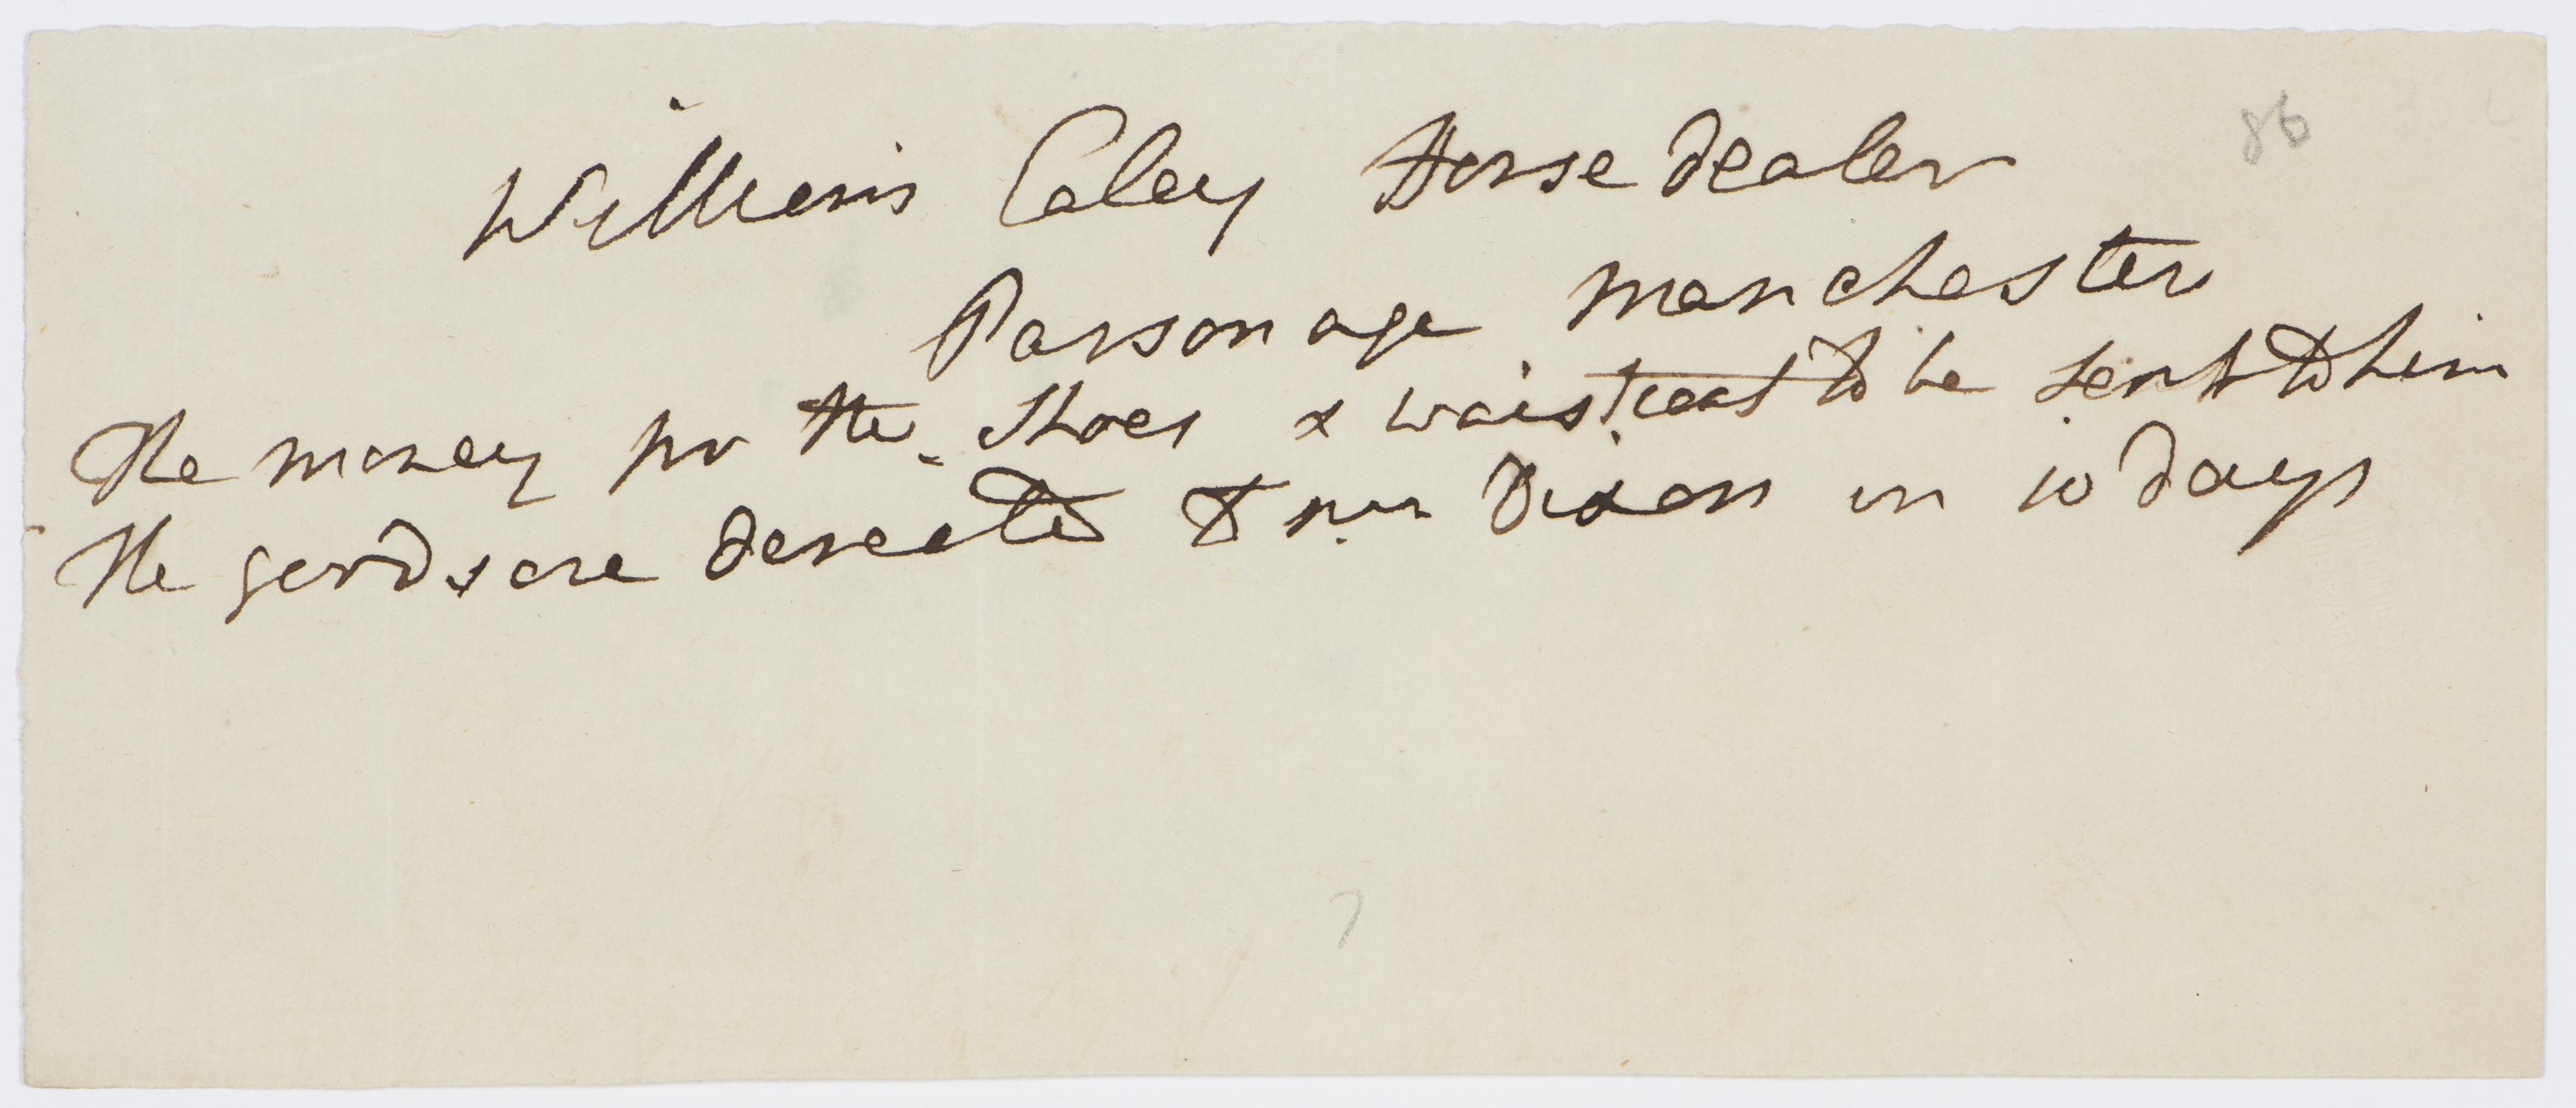 86
Williems Caley Horse dealer
Parsonage Manchester
The money for the Shoes & waistcoat to be sent to him
The goods are derected to Mr Dixon in 10 days
7